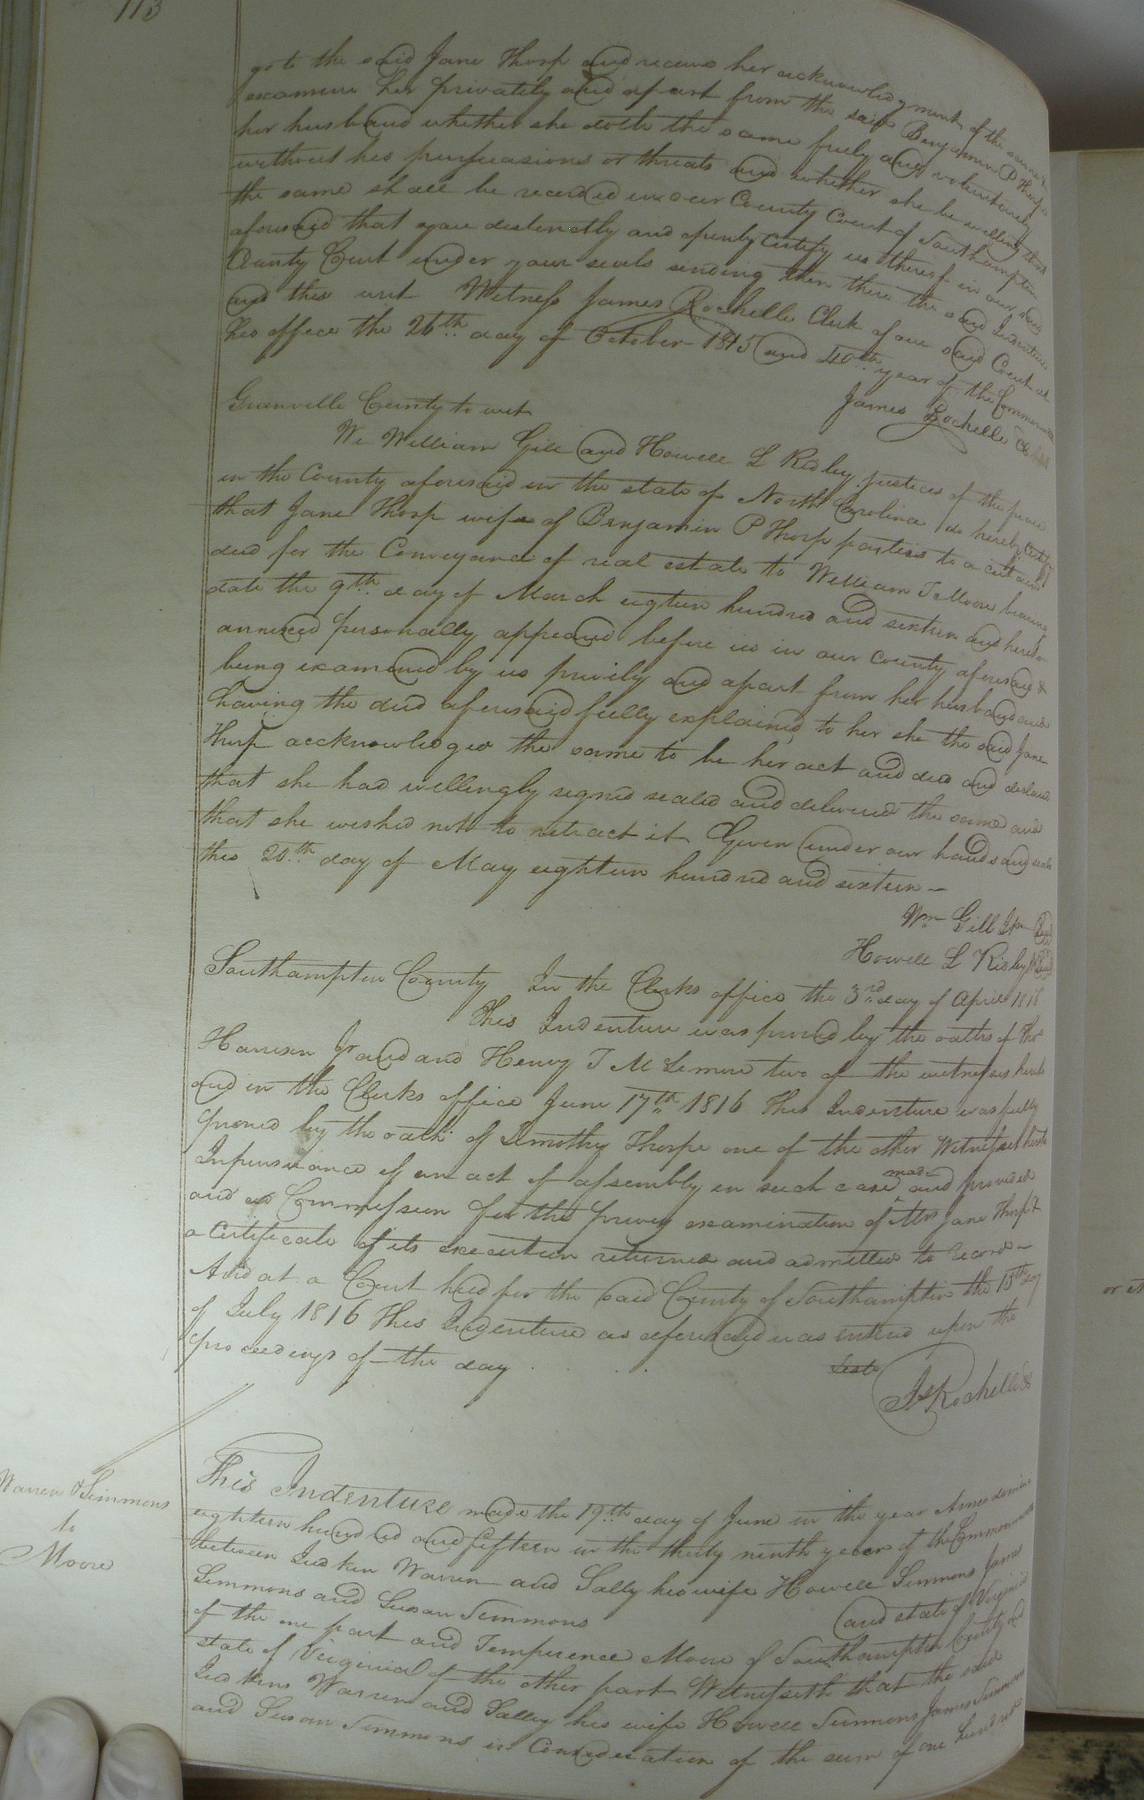 113
go to the said Jane Thorp and receive her acknowledgment of the same &
examine her privately and apart from the said Benjamin P Thorp
her husband whether she doth the same freely and voluntarily
without his persuasions or threats and whether she be willing that
the same shall be recorded in our County Court of Southampton
aforesaid that you distinctly and openly certify us thereof in our said
County Court under your seals sending then there the said Indenture
and this writ Witness James Rochelle Clerk of our said Court at
his office the 26th day of October 1815 and 40th year of the Commonwealth
James Rochelle
Granville County to wit
We William Gill and Howell L Ridley justices of the peace
in the County aforesaid in the state of North Carolina do hereby certify
that Jane Thorp wife of Benjamin P Thorp parties to a certain
deed for the Conveyance of real estate to William T Moore bearing
date the 9th day of March eigteen hundred and sixteen and hereto
annexed personally appeared before us in our county aforesaid &
being examined by us privily and apart from her husband and
having the deed aforesaid fully explained to her she the said Jane
Thorp accknowledged the same to be her act and deed and declared
that she had willingly signed sealed and delivered the same and
that she wished not to retract it Given under our hands and seals
this 20th day of May eighteen hundred and sixteen
Wm Gill
Howell L Ridley
Southampton County In the Clerks office the 3rd day of April 1816
This Indenture was proved by the oaths of Tho
Harrison Jr and and Henry J McLemore two of the witnesses hereto
and in the Clerks office June 17th 1816 This Indenture was fully
proved by the oath of Timothy Thorpe one of the other Witnesses hereto
Inpursuance of an act of assembly in such case made and provided
and a Commission for the privy examination of Mrs Jane Thorp &
a Certificate of its execution returned and admitted to record
And at a Court held for the said County of Southampton the 15th day
of July 1816 This Indenture as aforesaid was entered upon the
proceedings of the day
Teste
Js Rochelle
Warren & Simmons
to
Moore
This Indenture made the 19th day of June in the year
eighteen hundred and fifteen in the thirty ninth year of the Commonwealth
between Judkin Warren and Sally his wife Howell Simmons James
Simmons and Susan Simmons and state of Virginia
of the one part and Temperence Moore of Southampton County and
state of Virginia of the other part Witnesseth that the said
Judkins Warren and Salley his wife Howell Simmons James Simmons
and Susan Simmons in Consideration of the sum of one hundred